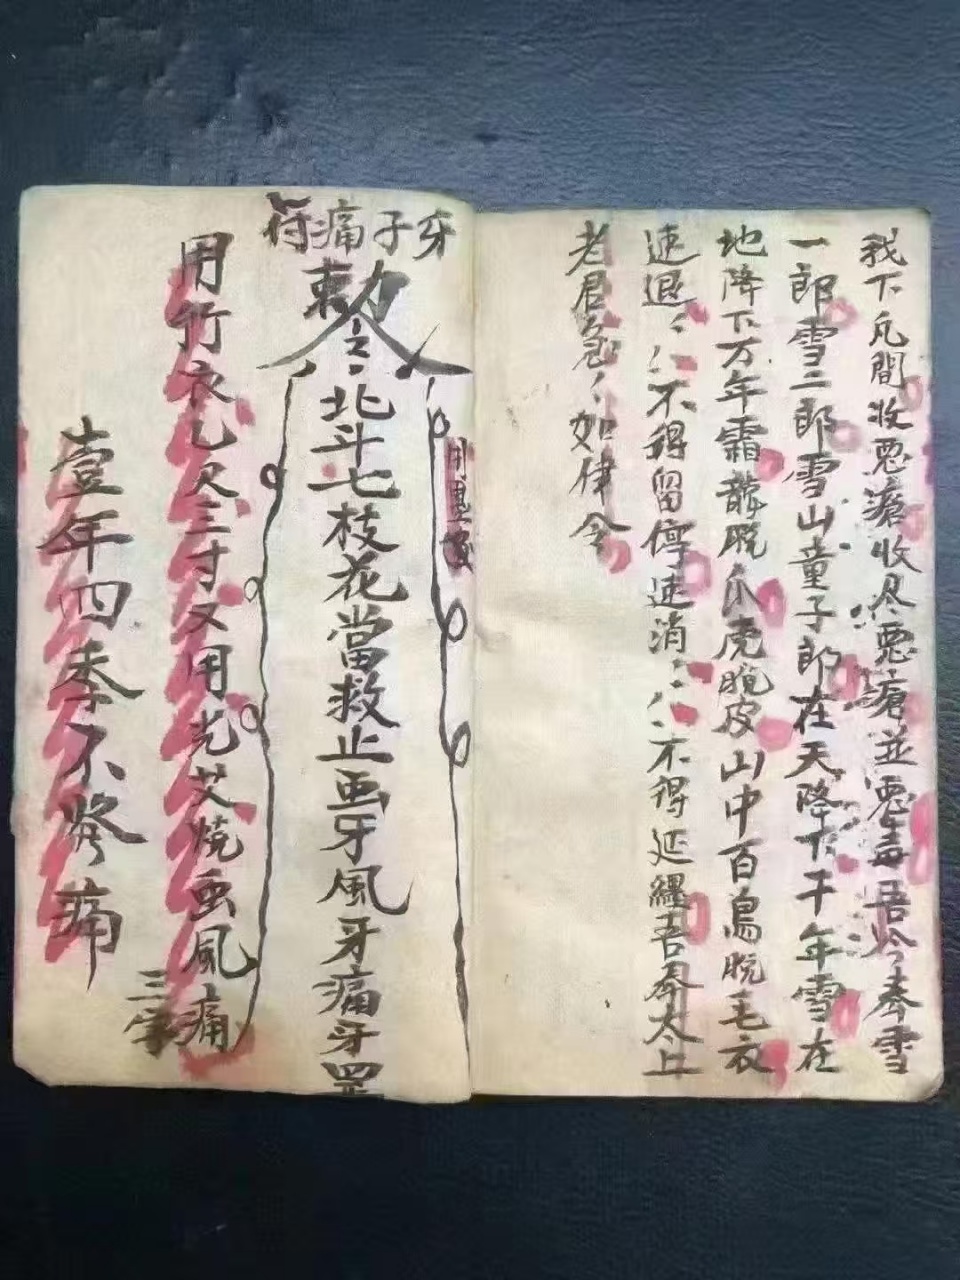 我下凡間收悪瘡收尽悪瘡並悪毒吾今奉雪
一郎雪二郎雪山童子郎在天降下千年雪在
地降下万年霜龍脱爪虎脱皮山中百鳥脱毛衣
速退〻〻不得留停速消〻〻不得延纏吾奉太上
老君急〻如律令
牙子痛符
敕令
北斗七枝花當救止虫牙風牙痛牙罡
用墨
用竹衣乙尺三寸又用光艾燒虫風痛
三字
壹年四季不發痛